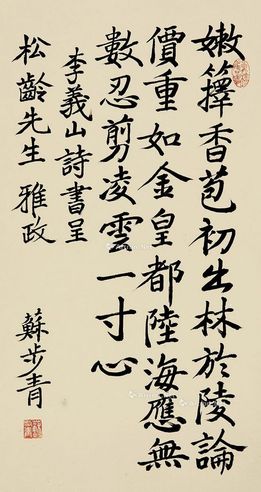 嫩籜香苞初出林於陵論
價重如金皇都陸海應無
數忍剪凌雲一寸心
李義山詩書呈
松齡先生 雅政
蘇步青